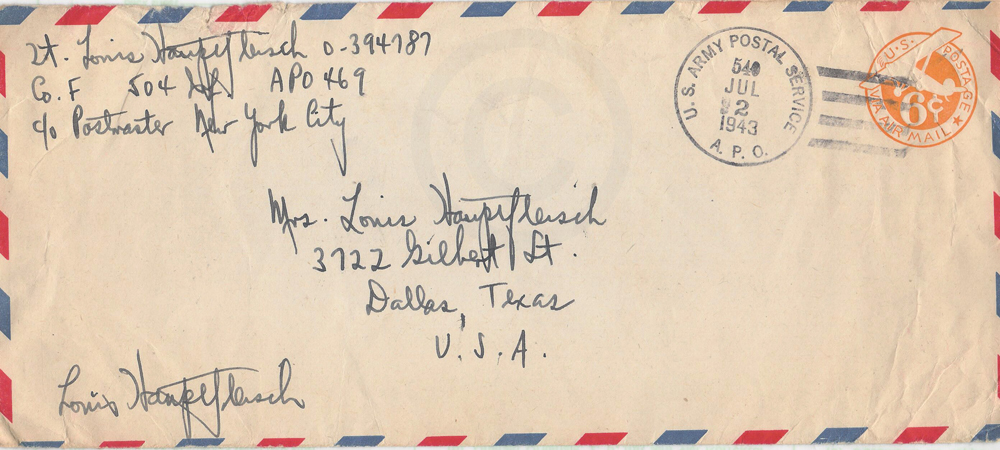 Lt. Louis Hauptfleisch O-394787
Co. F 504 Inf. APO 469
c/o Postmaster New York City
U.S. ARMY POSTAL SERVICE
540
JUL
2
1943
A.P.O.
U.S. POSTAGE
6¢
VIA AIR MAIL
Mrs. Louis Hauptfleisch
3722 Gilbert St.
Dallas, Texas
U.S.A.
Louis Hauptfleisch